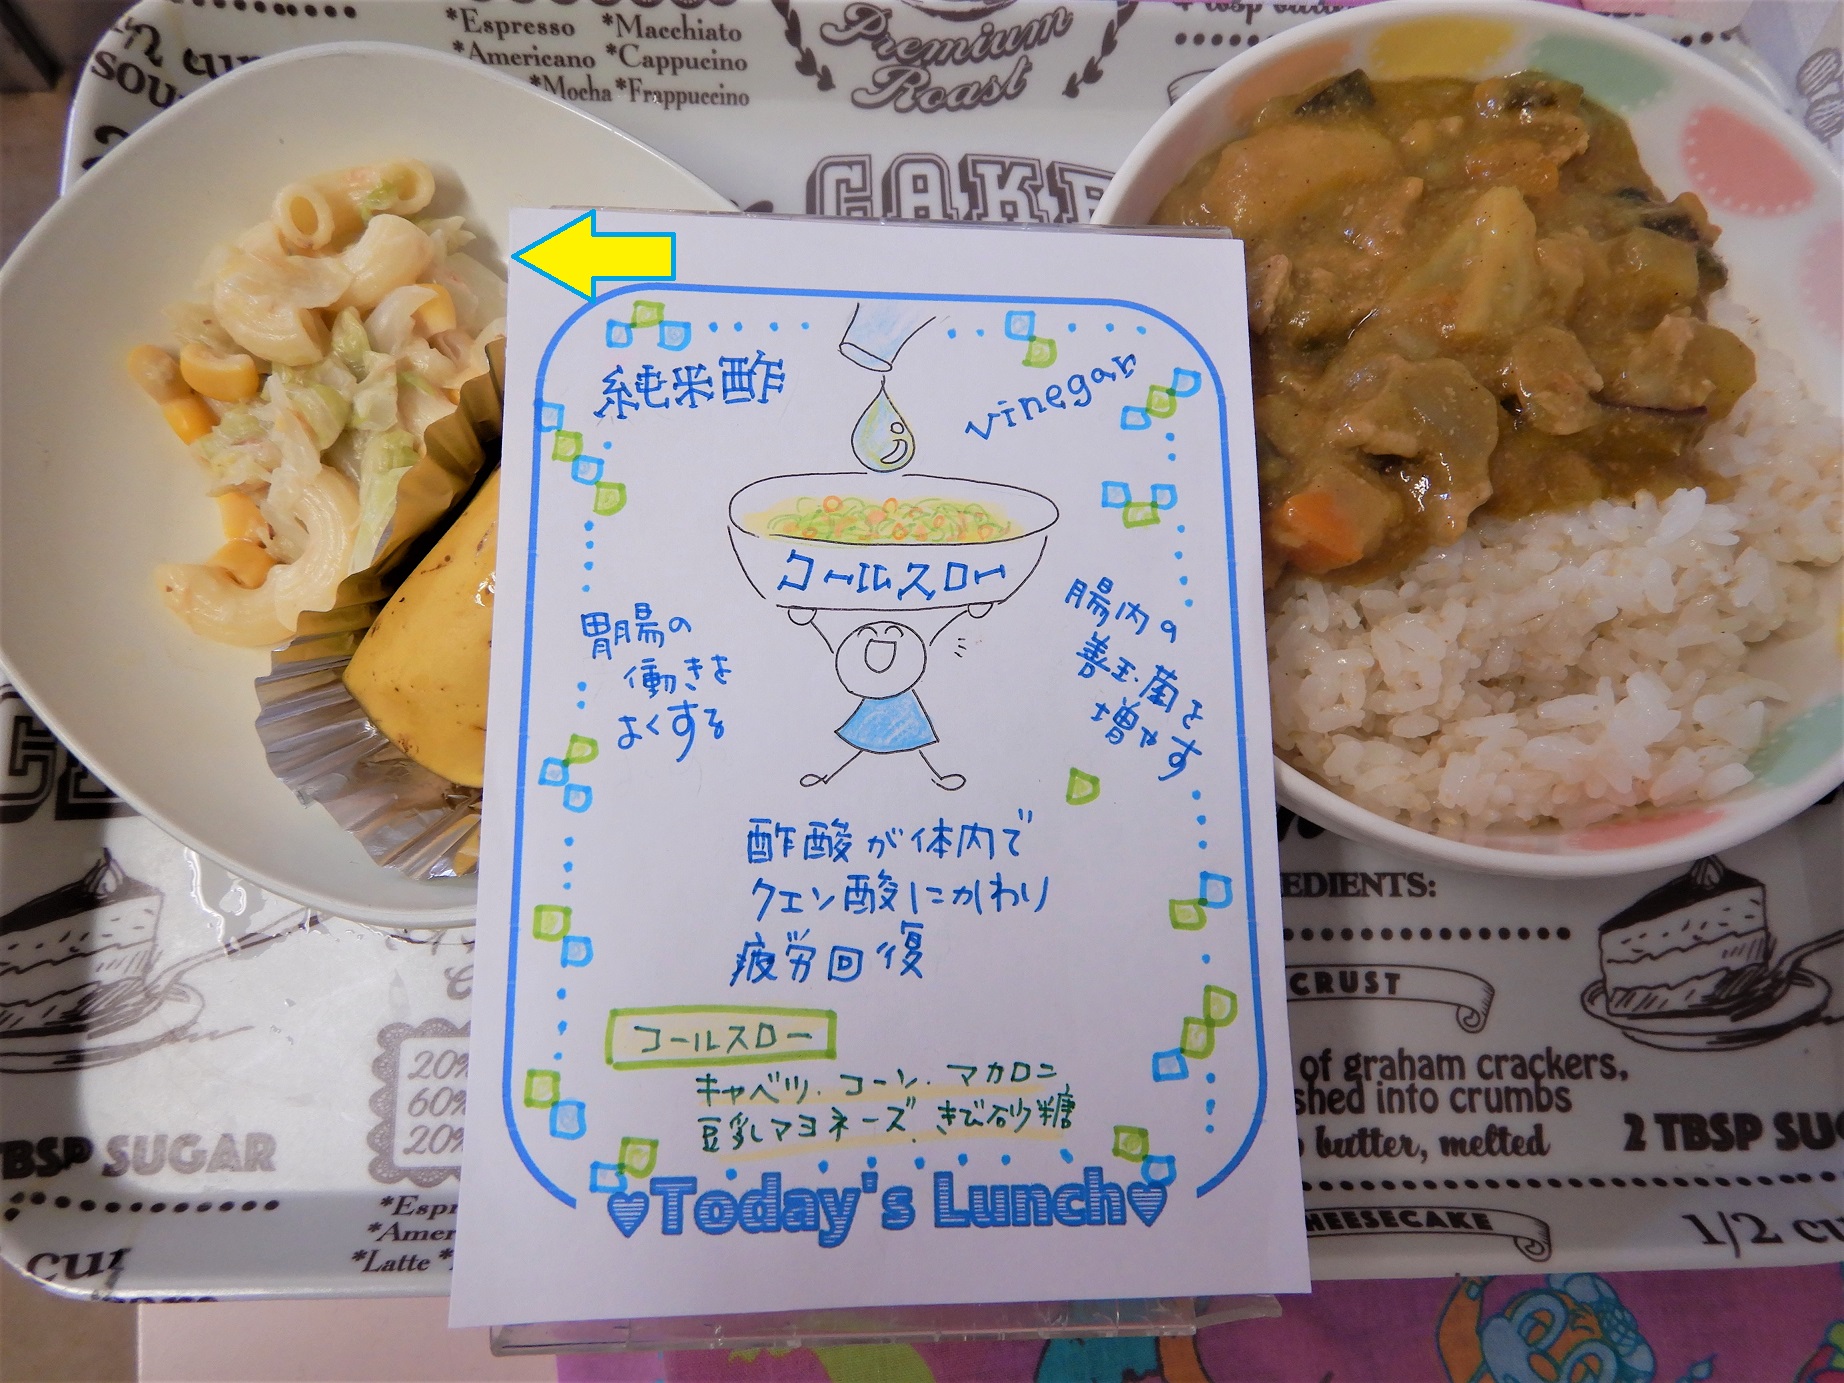 *Espresso *Macchiato
*Americano *Cappucino
*Mocha *Frappuccino
Premium
Roast
CAKE
純米酢
vinegar
コールスロー
胃腸の
働きを
よくする
腸内の
善玉菌を
増やす
酢酸が体内で
クエン酸にかわり
疲労回復
コールスロー
キャベツ.コーン.マカロニ
豆乳マヨネーズ.きび砂糖
♥Today's Lunch♥
EDIENTS:
CRUST
of graham crackers,
shed into crumbs
butter, melted
2 TBSP SU
HEESECAKE
1/2 cu
20%
60%
20%
TBSP SUGAR
*Espr
*Amer
*Latte *
cup